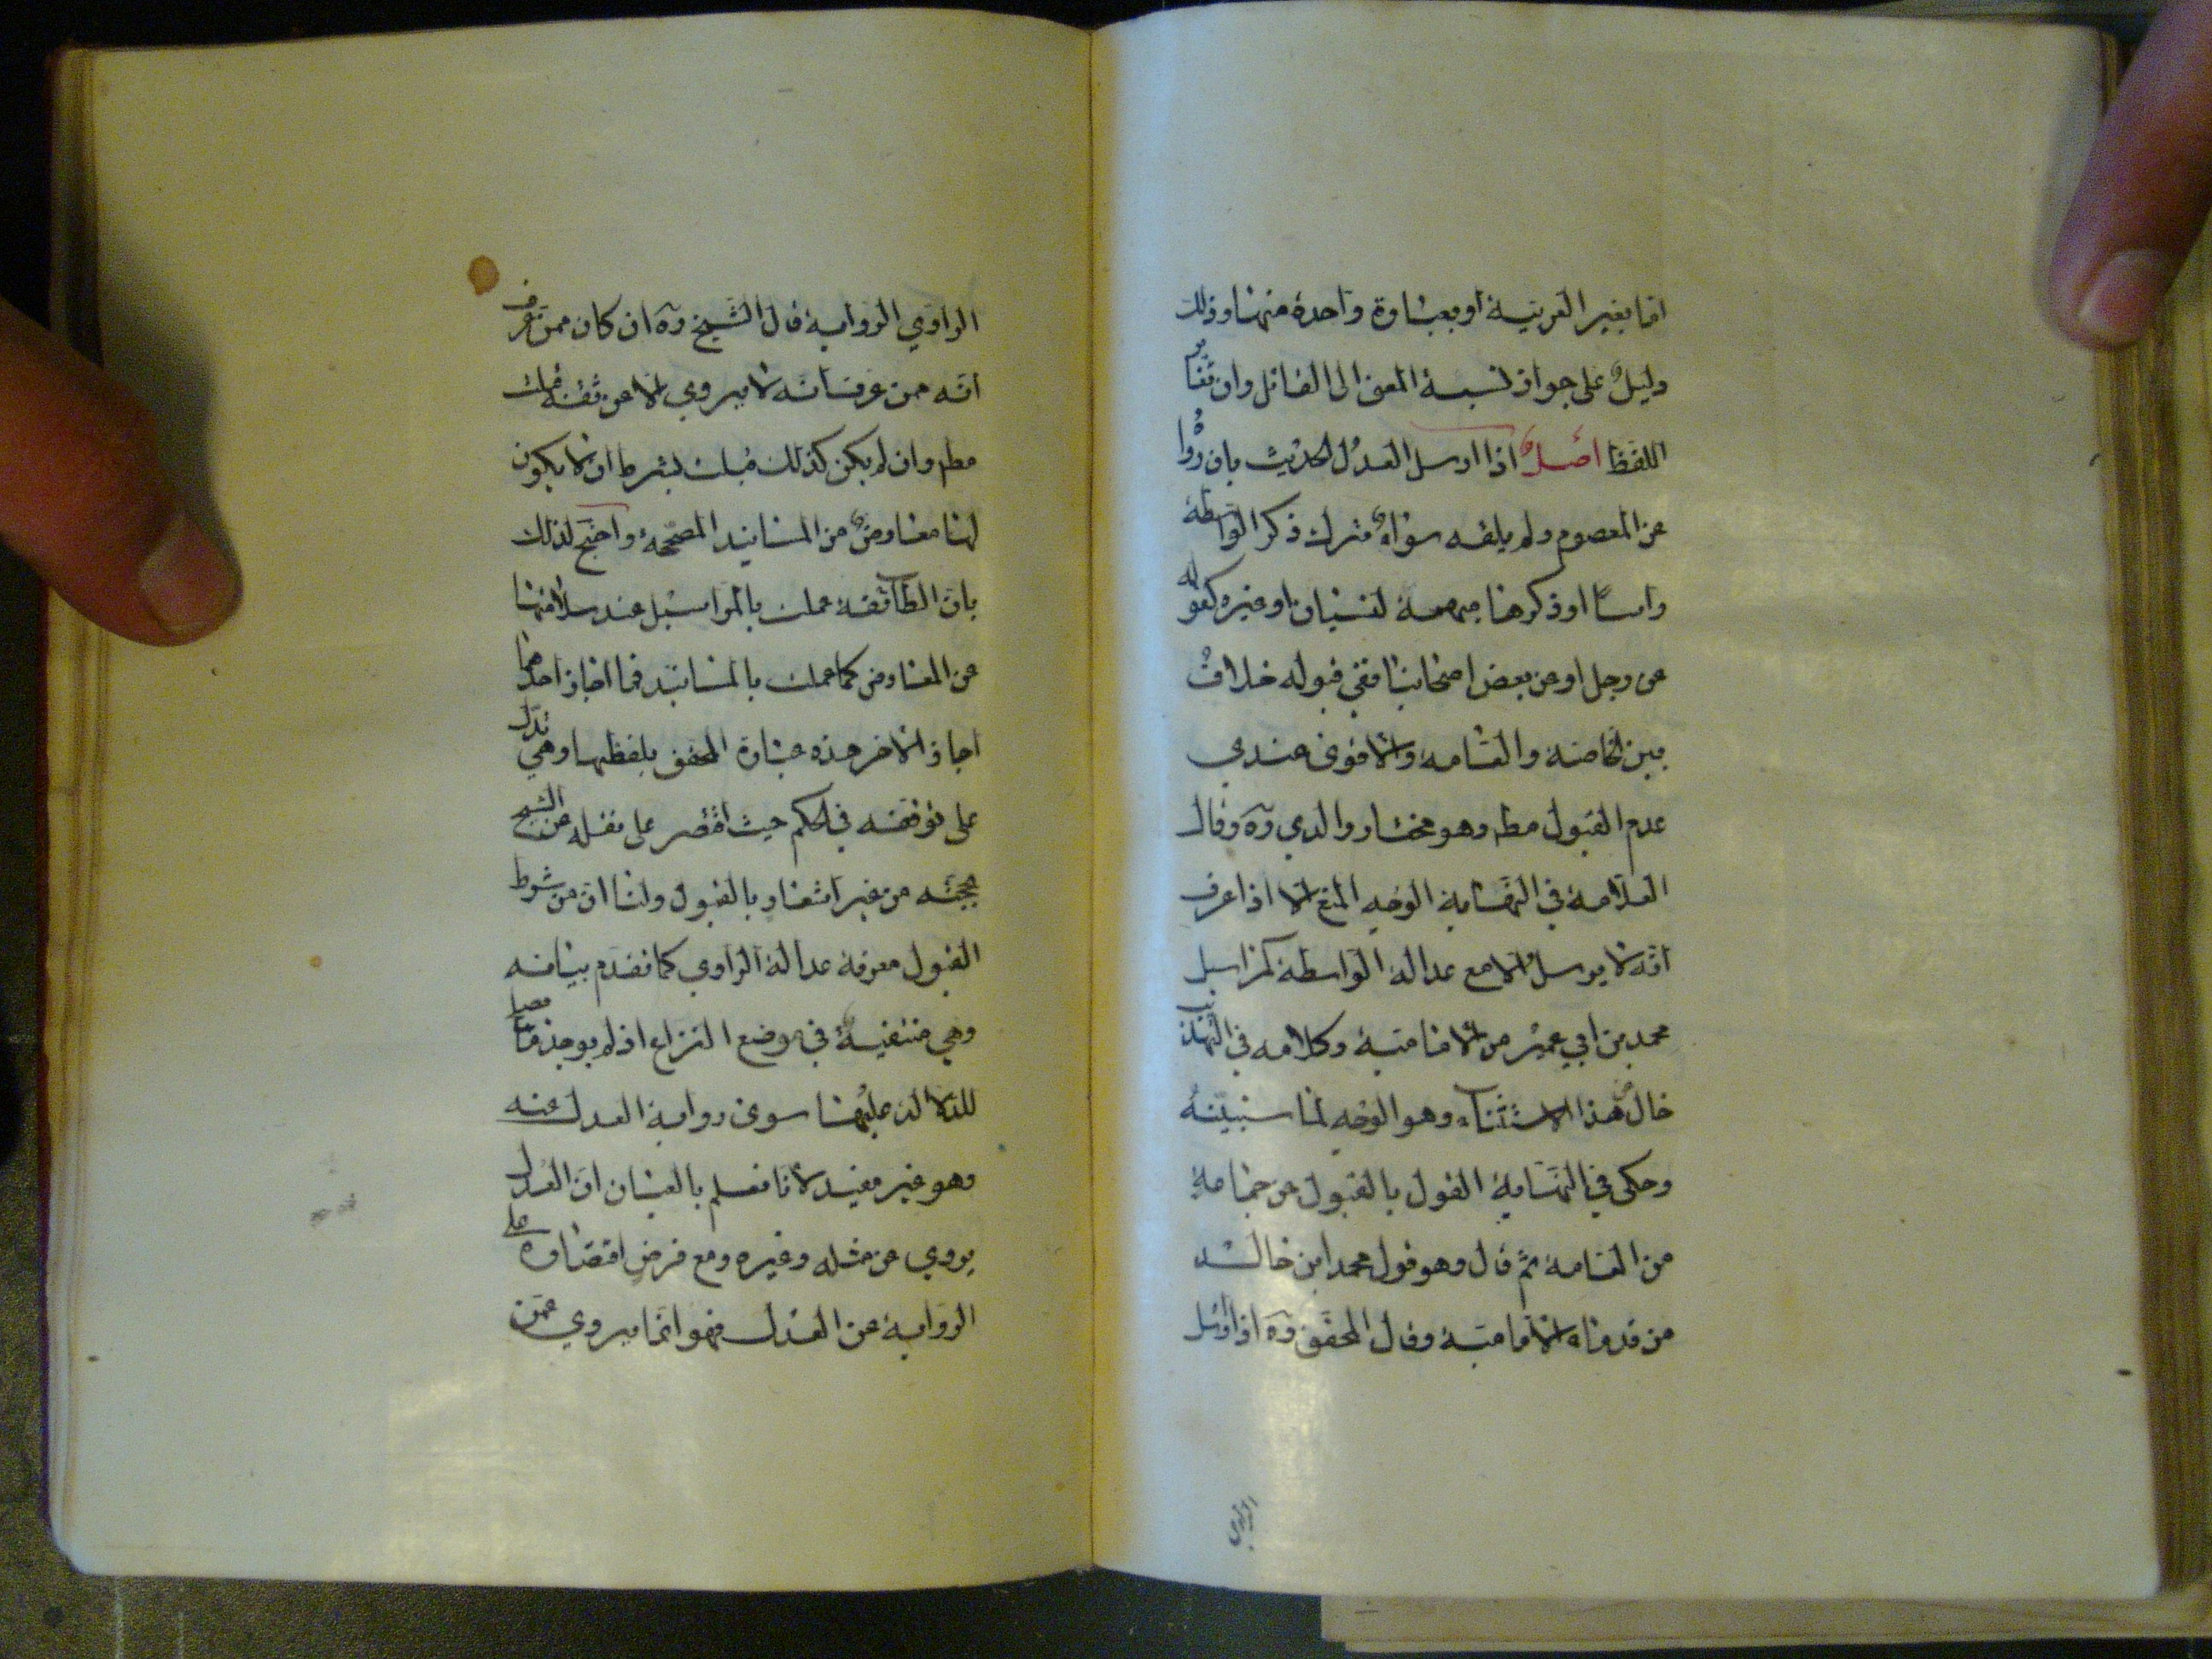 اما بغير العربية او بعبارة واحدة منها وذلك
دليل على جواز نسبة المعنى الى القائل وان تغاير
اللفظ اصل اذا ارسل العدل الحديث بان رواه
عن المعصوم ولم يلقه سواء ترك ذكر الواسطة
راسا او ذكرها مبهمة لنسيان او غيره كقوله
عن رجل او عن بعض اصحابنا ففي قبوله خلاف
بين الخاصة والعامة والاقوى عندي
عدم القبول مطم وهو مختار والدي ره وقال
العلامة في النهاية الوجه المنع الا اذا عرف
انه لا يرسل الا مع عدالة الواسطة كمراسيل
محمد بن ابي عمير من الامامية وكلامه في التهذيب
خال هذا الاستثناء وهو الوجه لما سنبينه
وحكى في النهاية القول بالقبول عن جماعة
من العامة ثم قال وهو قول محمد ابن خالد
من قدماء الامامية وقال المحقق ره اذا ارسل
الراوي
الراوي الرواية قال الشيخ ره ان كان ممن عرف
انه ممن عرف انه لا يروي الا عن ثقة قبلت
مطم وان لم يكن كذلك قبلت بشرط ان لا يكون
لها معارض من المسانيد الصحيحة واحتج لذلك
بان الطائفة عملت بالمراسيل عند سلامتها
عن المعارض كما عملت بالمسانيد فما اجاز احدهما
اجاز الاخر هذه عبارة المحقق بلفظها وهي تدل
على توقفه في الحكم حيث اقتصر على نقله عن الشيخ
بحجته من غير اشعار بالقبول ولنا ان من شرط
القبول معرفة عدالة الراوي كما تقدم بيانه
وهي منتفية في موضع النزاع اذ لم يوجد ما يصلح
للدلالة عليها سوى رواية العدل عنه
وهو غير مفيد لانا نعلم بالعيان ان العدل
يروي عن مثله وغيره ومع فرض اقتصاره على
الرواية عن العدل فهو انما يروي عمن